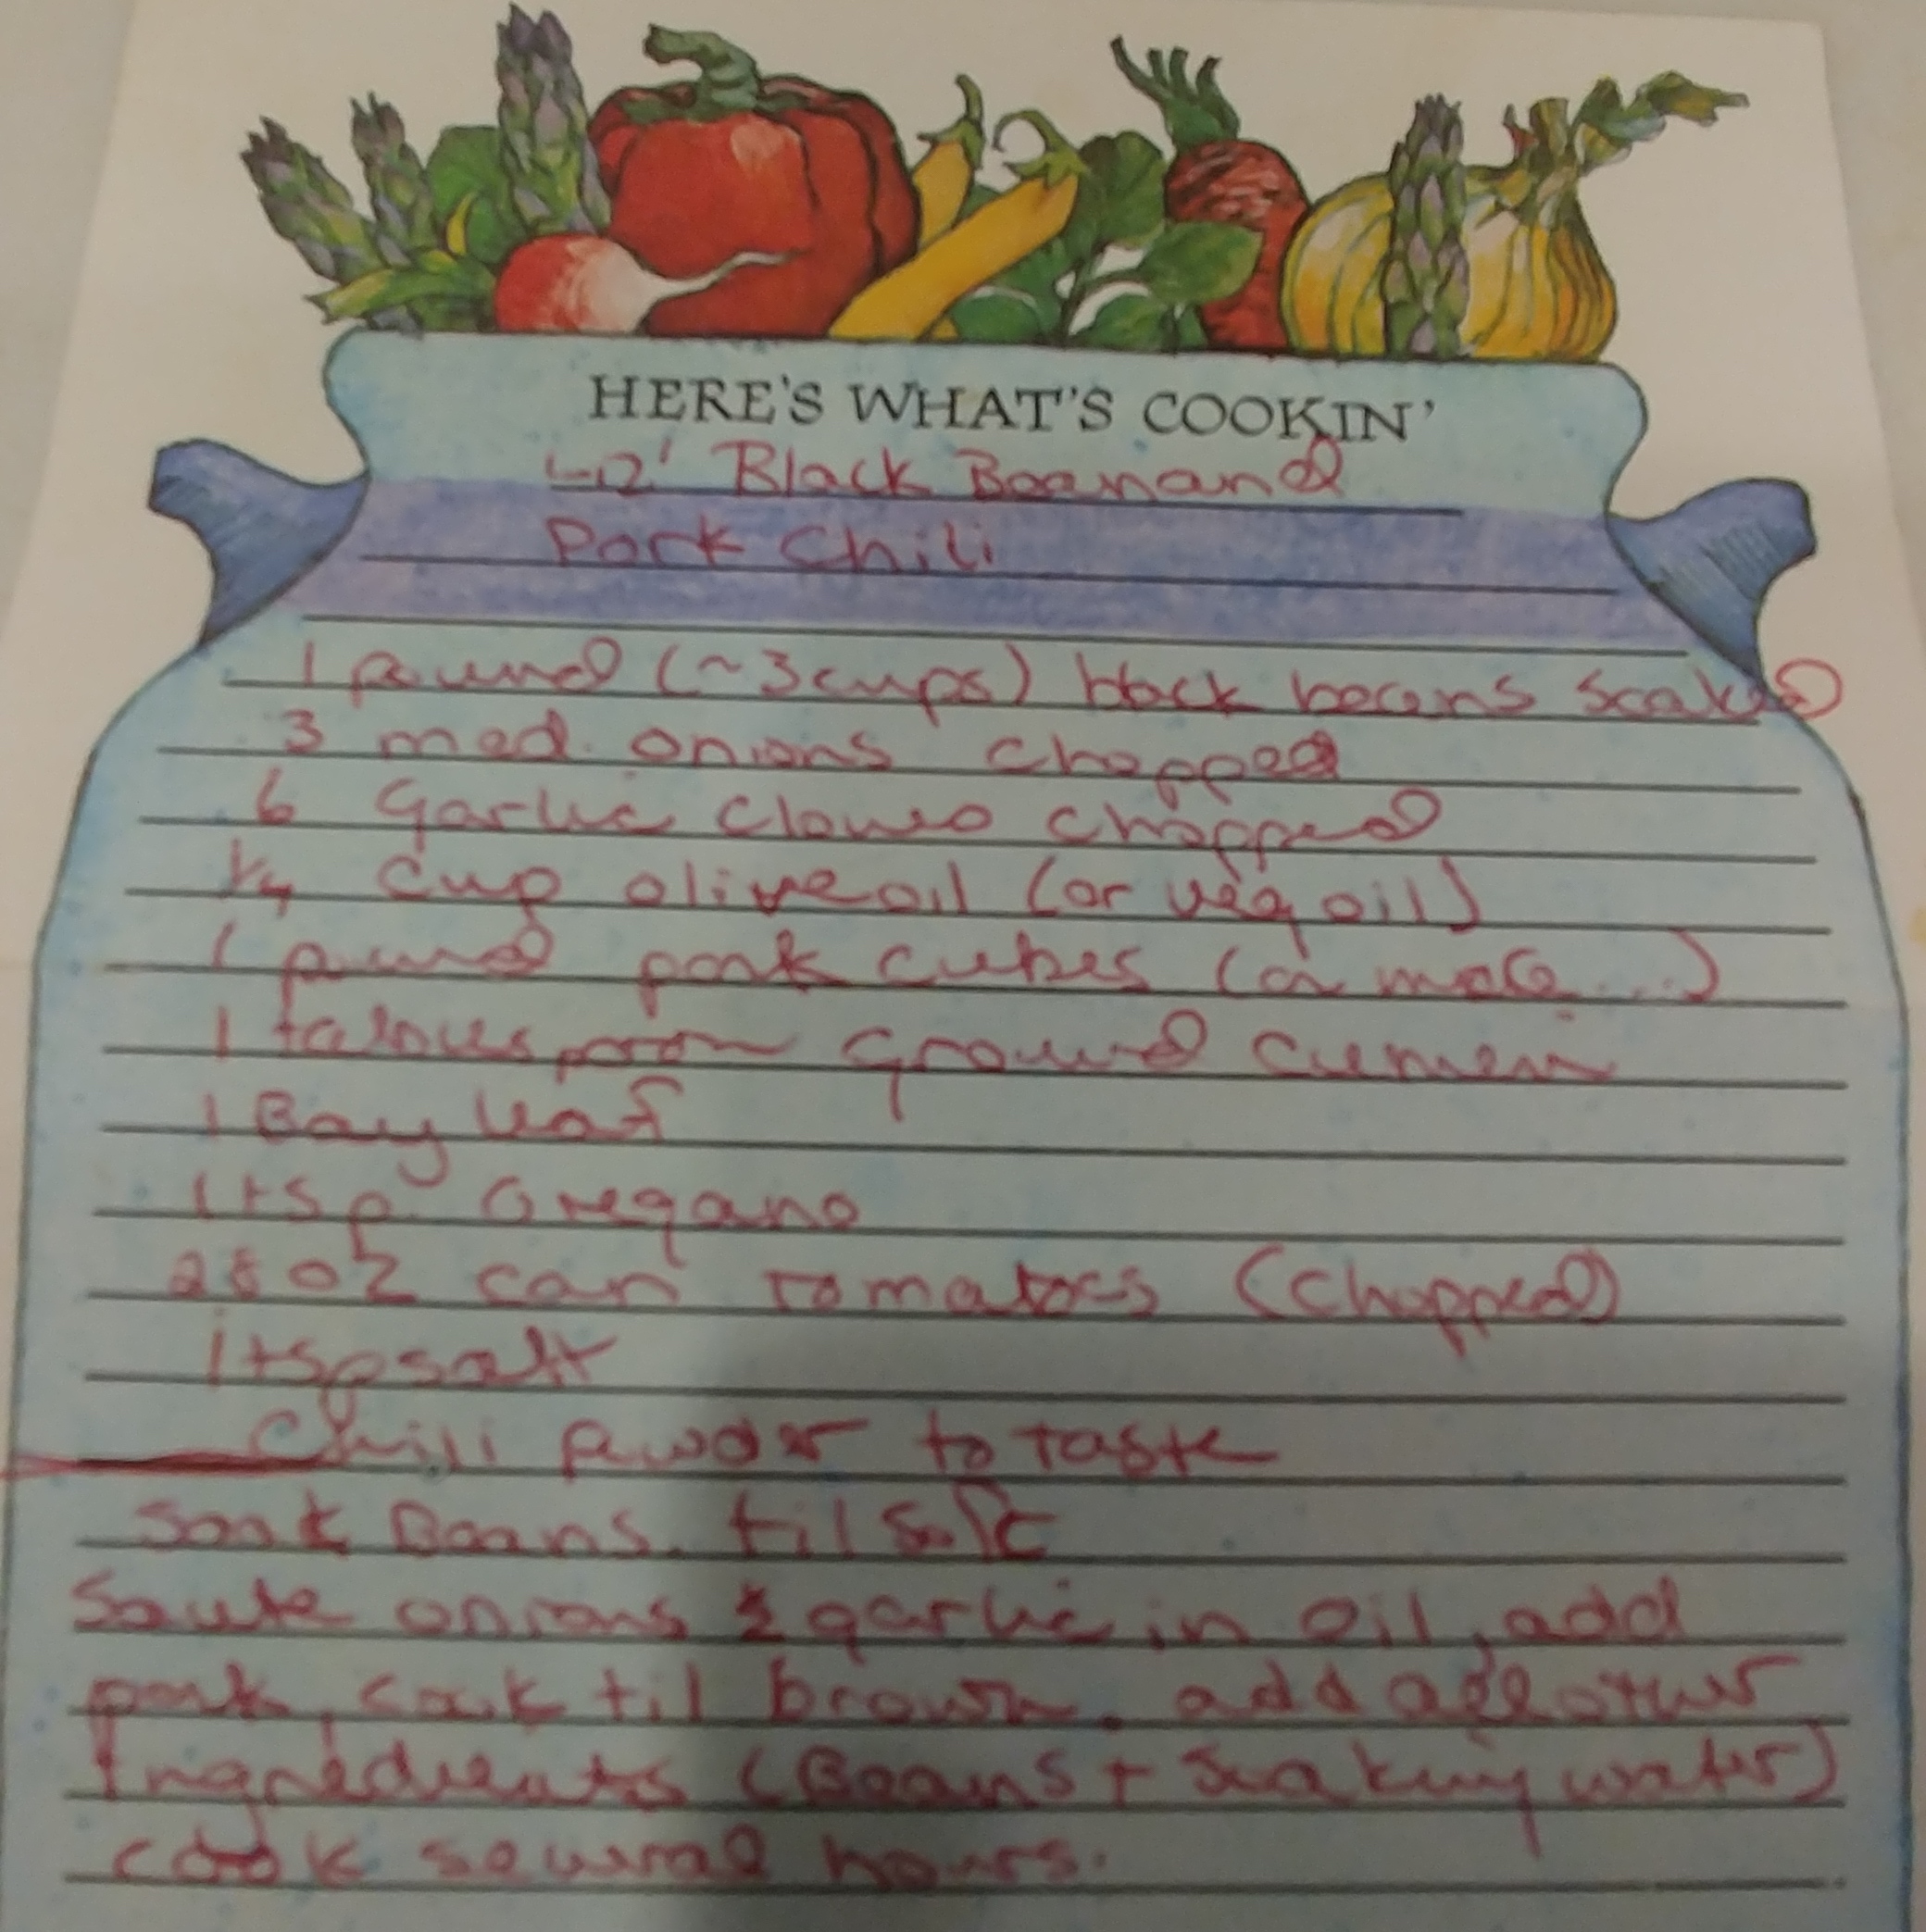 HERE'S WHAT'S COOKIN'
Black Bean and
Pork Chili
1 pound (~3cups) black beans soaked
3 med. onions chopped
6 Garlic cloves chopped
1/4 cup olive oil (or veg oil)
1 pound pork cubes (or more...)
1 tablespoon ground cumin
1 Bay leaf
1 tsp. oregano
28 oz can tomatoes (chopped)
1 tsp salt
Chili powder to taste
Soak Beans. til soft
Saute onions & garlic in oil, add
pork, cook til brown. add all other
Ingredients (Beans + soaking water)
cook several hours.